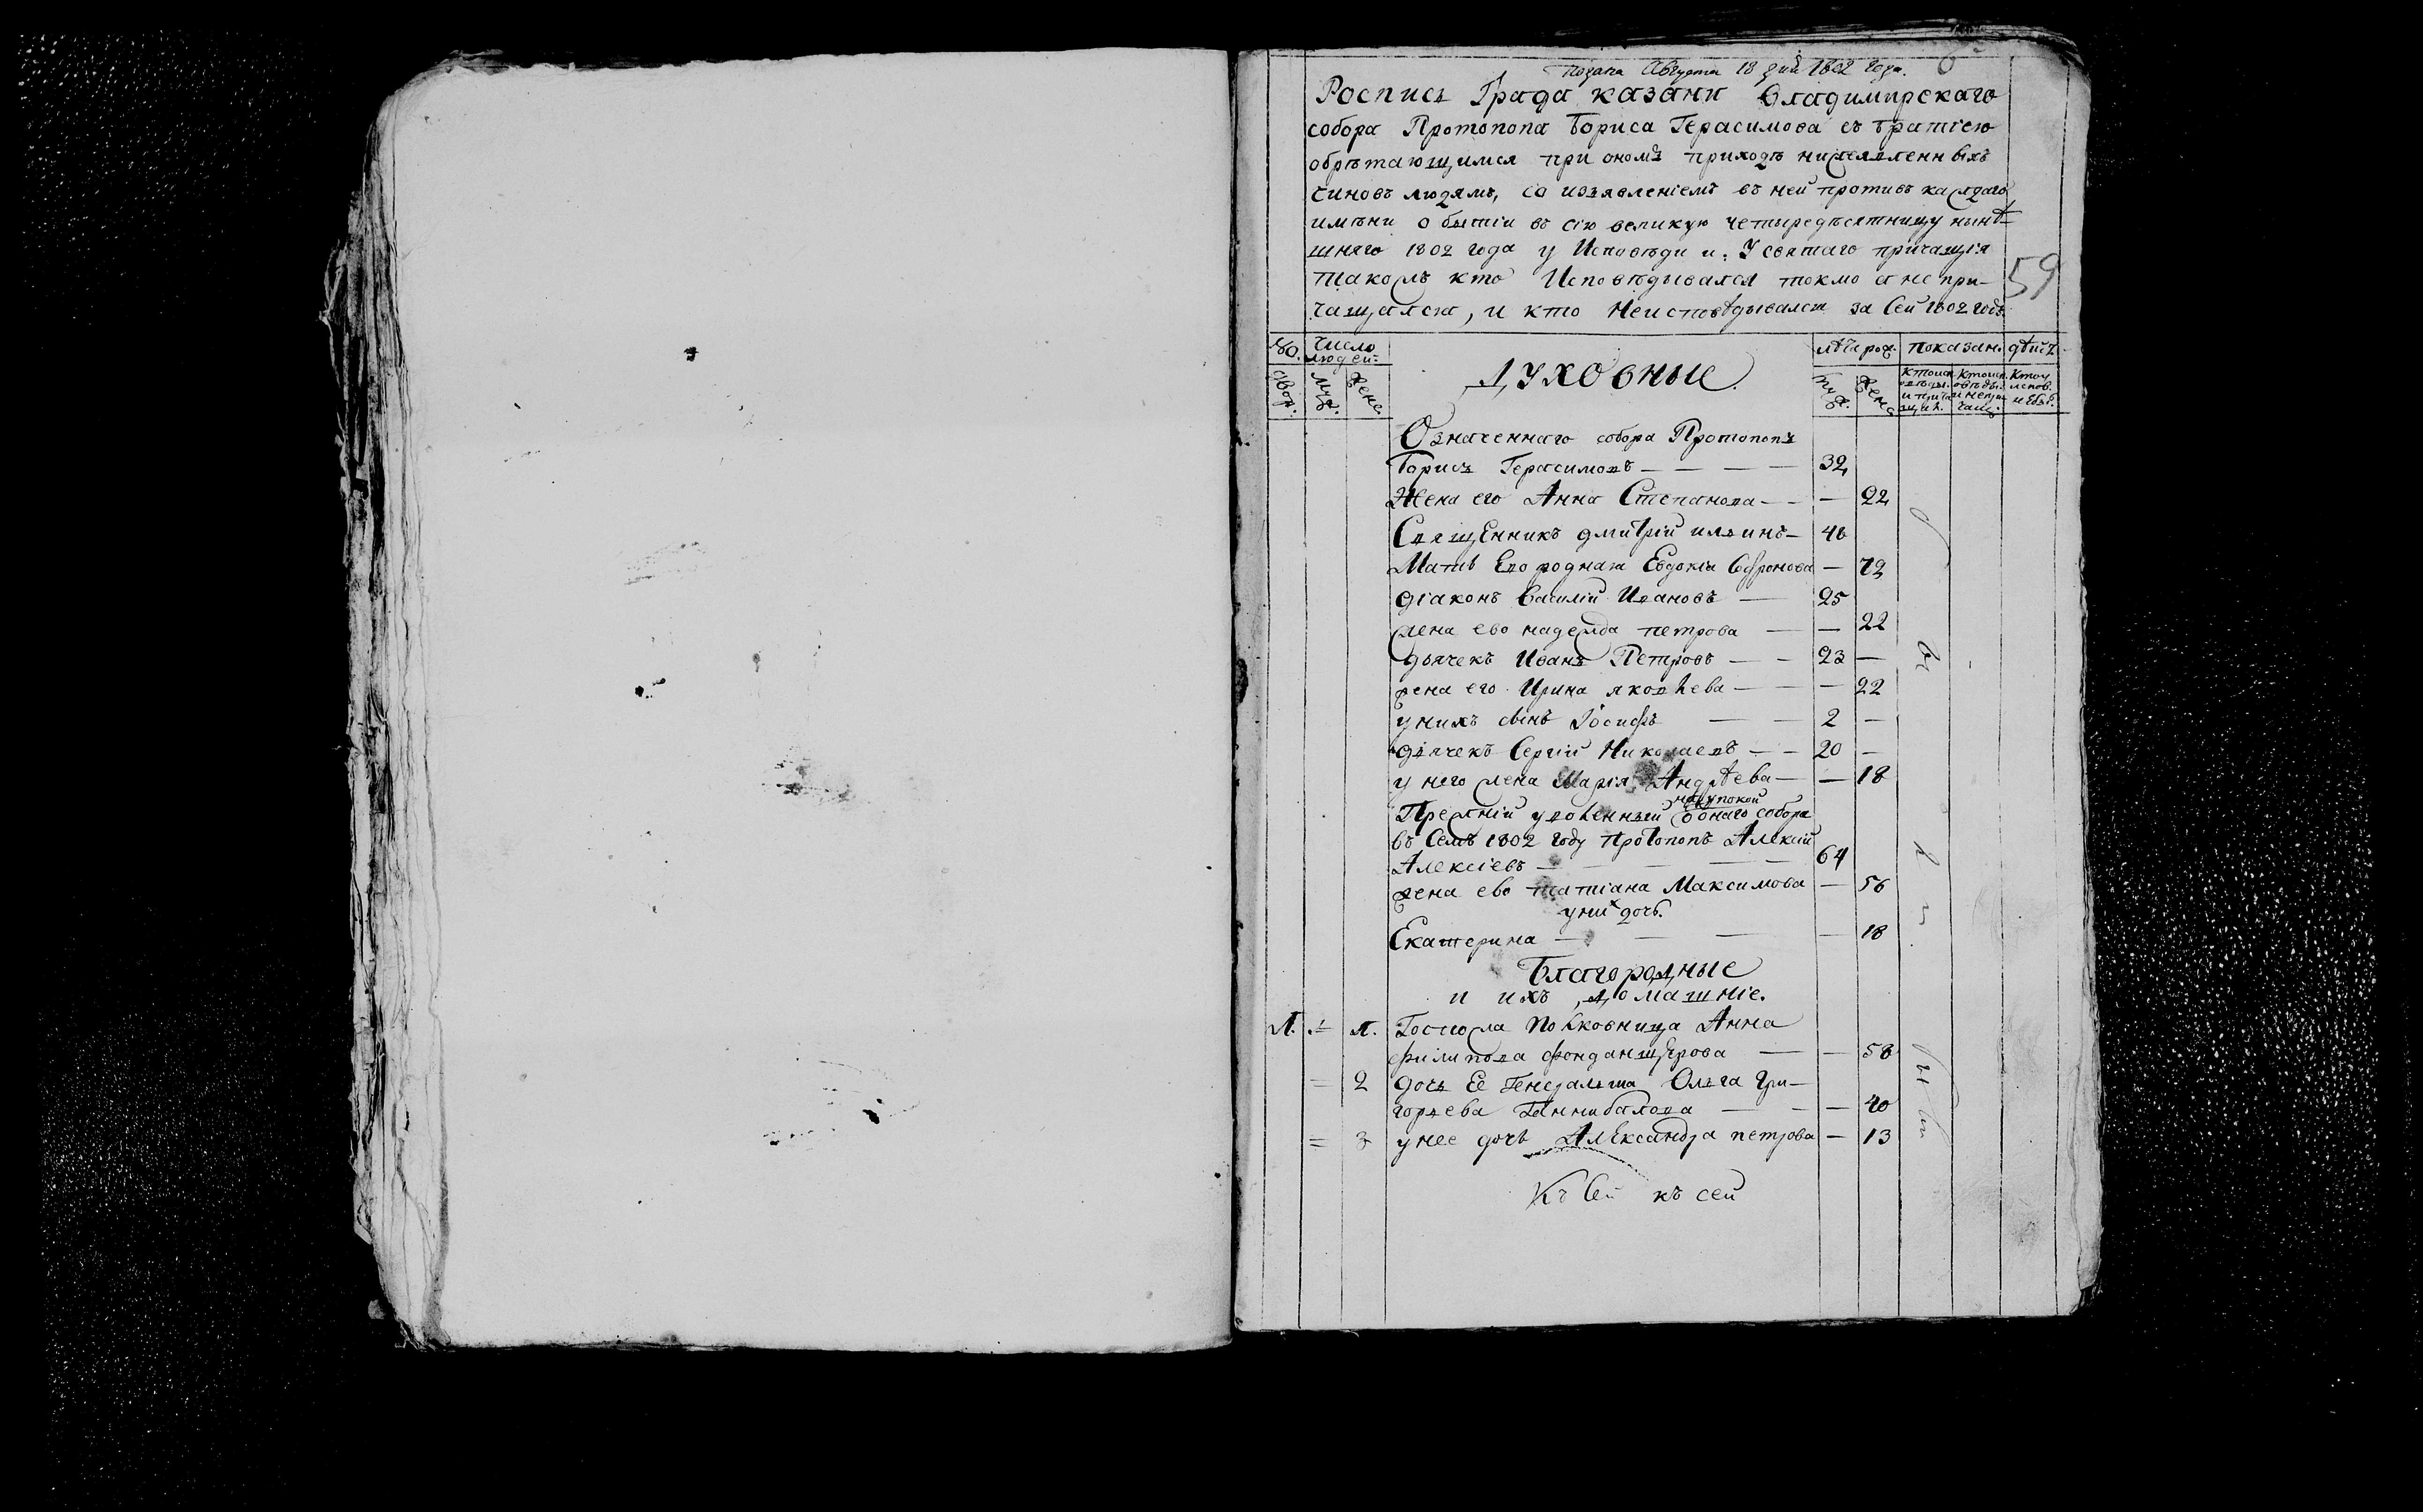 подана Августа 18 дня 1802 года. 6
Роспись Града казани Владимирскаго
собора Протопопа Бориса Герасимова съ братіею
обрѣтающимся при ономъ приходѣ нижеявленныхъ
чиновъ людямъ, со изъявленіемъ въ ней противъ каждаго
имѣни о бытіи въ сію великую четыредѣсятницу нынѣ-
шняго 1802 года у Исповѣди и: У святаго причащія
такожъ кто Исповѣдывался токмо а не при-
чащался, и кто Неисповѣдывался за Сей 1802 годъ.
59
№.
число
людей:
двор:
муж.
жене.
Духовные
лѣта рож.
муж.
жене
показан. дѣйс.
Означеннаго собора Протопопъ
Борисъ Герасимовъ — — — — 32
Жена его Анна Степанова — — — 22
Священникъ дмитрій ильинъ — 46
Мать Ево родная Евдокія Софронова — 72
діаконъ Василій Ивановъ — 25
жена ево надежда петрова — — 22
дьячекъ Иванъ Петровъ — — 23 —
жена его Ирина яковлева — — — 22
у нихъ сынъ Іосифъ — — 2 —
дьячекъ Сергій Николаевъ — — 20 —
у него жена Марія Андрѣева — — 18
на упокой
Прежній уволенный онаго собора
въ Семъ 1802 году протопопъ Алексій
Алексіевъ — — — 64
жена ево татіана Максимова — 56
у них дочь.
Екатерина — — — — 18
Благородные
и ихъ домашніе.
1. = 1. Госпожа Полковница Анна
филипова фонданщерова — — 58
= 2 дочь Ее Генеральша Ольга Гри-
горьева Ганнибалова — — — 40
= 3 у нее дочь Александра петрова — 13
Къ Сей къ сей